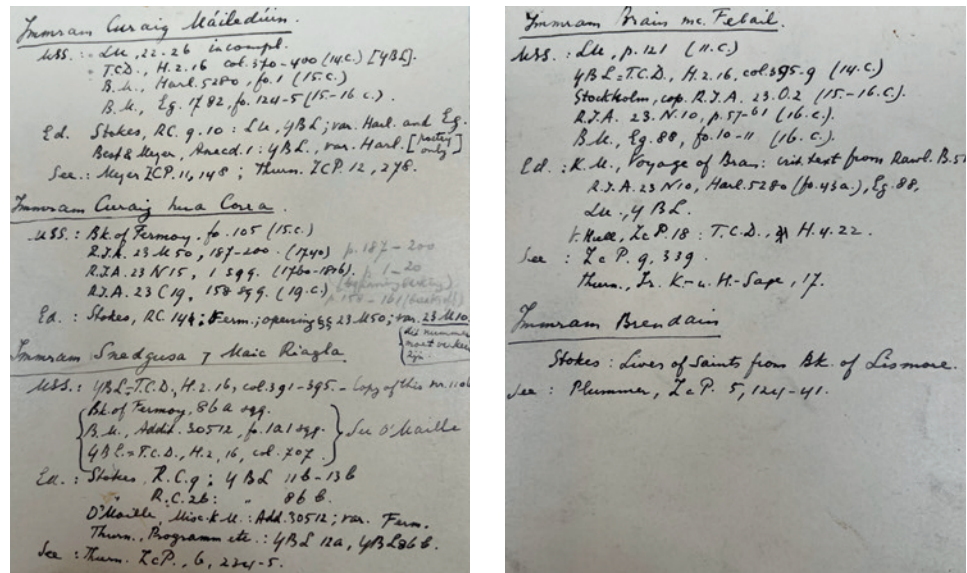 Immram Curaig Máiledúin.
MSS. : - LU, 22-26 incompl.
T.C.D., H.2.16 col. 370-400 (14.c.) [YBL].
B.M., Harl. 5280, fo. 1 (15.c.)
B.M., Eg. 1782, fo. 124-5 (15-16.c.).
Ed. Stokes, RC. 9.10 : LU, YBL; var. Harl. and Eg.
Best & Meyer, Anecd. 1 : YBL, var. Harl. [poetry only]
See. : Meyer ZCP. 11, 148 ; Thurn. ZCP. 12, 278.
Immram Curaig hua Corra.
MSS. : Bk. of Fermoy, fo. 105 (15.c.)
R.I.A. 23 M 50, 187-200. (1740) p. 187-200
R.I.A. 23 N 15, 1 sqq. (1760-1816) p. 1-20
R.I.A. 23 C 19, 158 sqq. (19.c.)
p. 158-161
Ed. : Stokes, RC. 14 ; Ferm.; opening §§ 23 M 50; var. 23 M 10.
dit nummer
moet
zijn
Immram Snedgusa 7 Maic Riagla.
MSS. : YBL = T.C.D., H.2.16, col. 391-395. - Copy of this
Bk. of Fermoy, 86 a sqq.
B.M., Addit. 30512, fo. 1a1 sqq. See O'Maille
YBL = T.C.D., H.2.16, col. 707.
Ed. : Stokes, R.C. 9 ; YBL 11b-13b
" R.C. 26 : " 86 b.
O'Maille, Misc. K.M. : Add. 30512 ; var. Ferm.
Thurn., Programm etc. : YBL 12a, YBL 86 b.
See : Thurn. ZcP., 6, 234-5.
Immram Brain mc. Febail.
MSS. : LU, p. 121 (11.c.)
YBL = T.C.D., H.2.16, col. 395-9 (14.c.)
Stockholm, cop. R.I.A. 23.O.2 (15.-16.c.).
R.I.A. 23.N.10, p. 57-61 (16.c.).
B.M., Eg. 88, fo. 10-11 (16.c.).
Ed. : K.M., Voyage of Bran : text from Rawl. B.
R.I.A. 23 N10, Harl. 5280 (fo. 43a.), Eg. 88,
LU., YBL.
V. Hull, ZcP. 18 : T.C.D., H.4.22.
See : ZcP. 9, 339.
Thurn., Ir. K-u. H.-Sage, 17.
Immram Brendain
Stokes : Lives of Saints from Bk. of Lismore.
See : Plummer, ZcP. 5, 124-41.